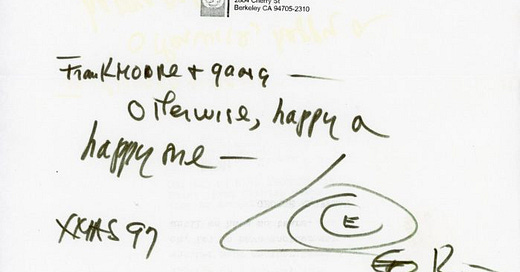 2604 Cherry St
Berkeley CA 94705-2310
Frank Moore + gang —
Otherwise, happy a
happy one —
E
XMAS 97